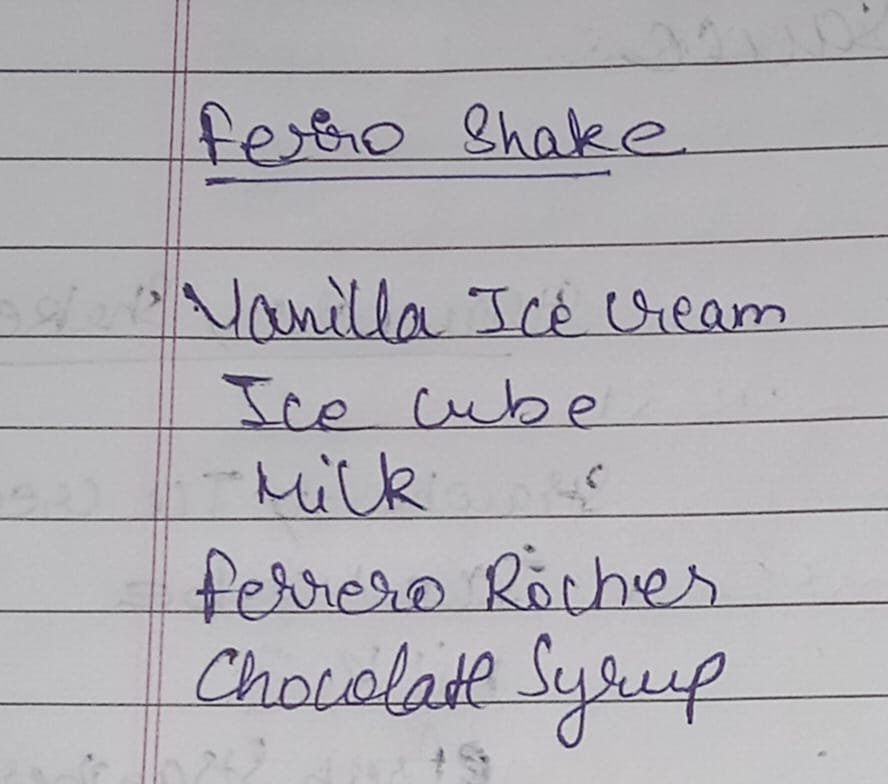 Ferro Shake
Vanilla Ice Cream
Ice Cube
Milk
Ferrero Rocher
Chocolate Syrup